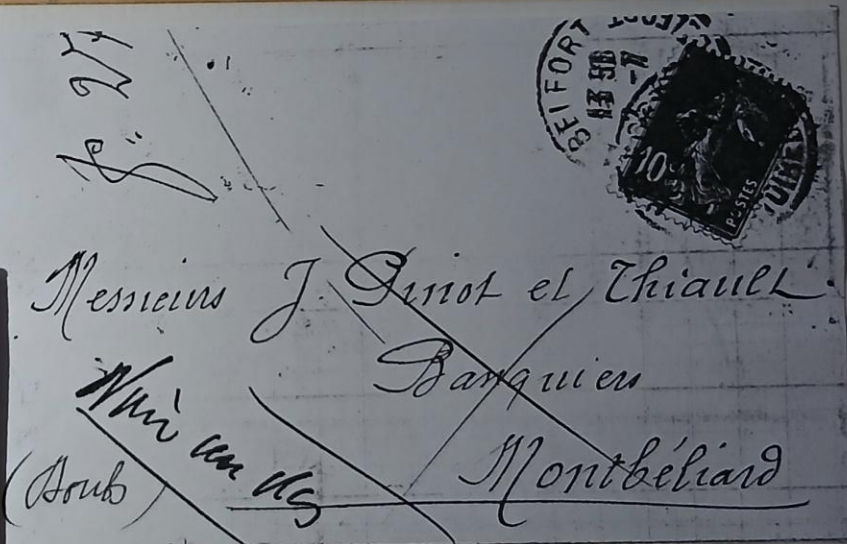 BELFORT
10
POSTES
Messieurs J. Pinot et Thiault
Banquiers
Montbéliard
(Doubs)